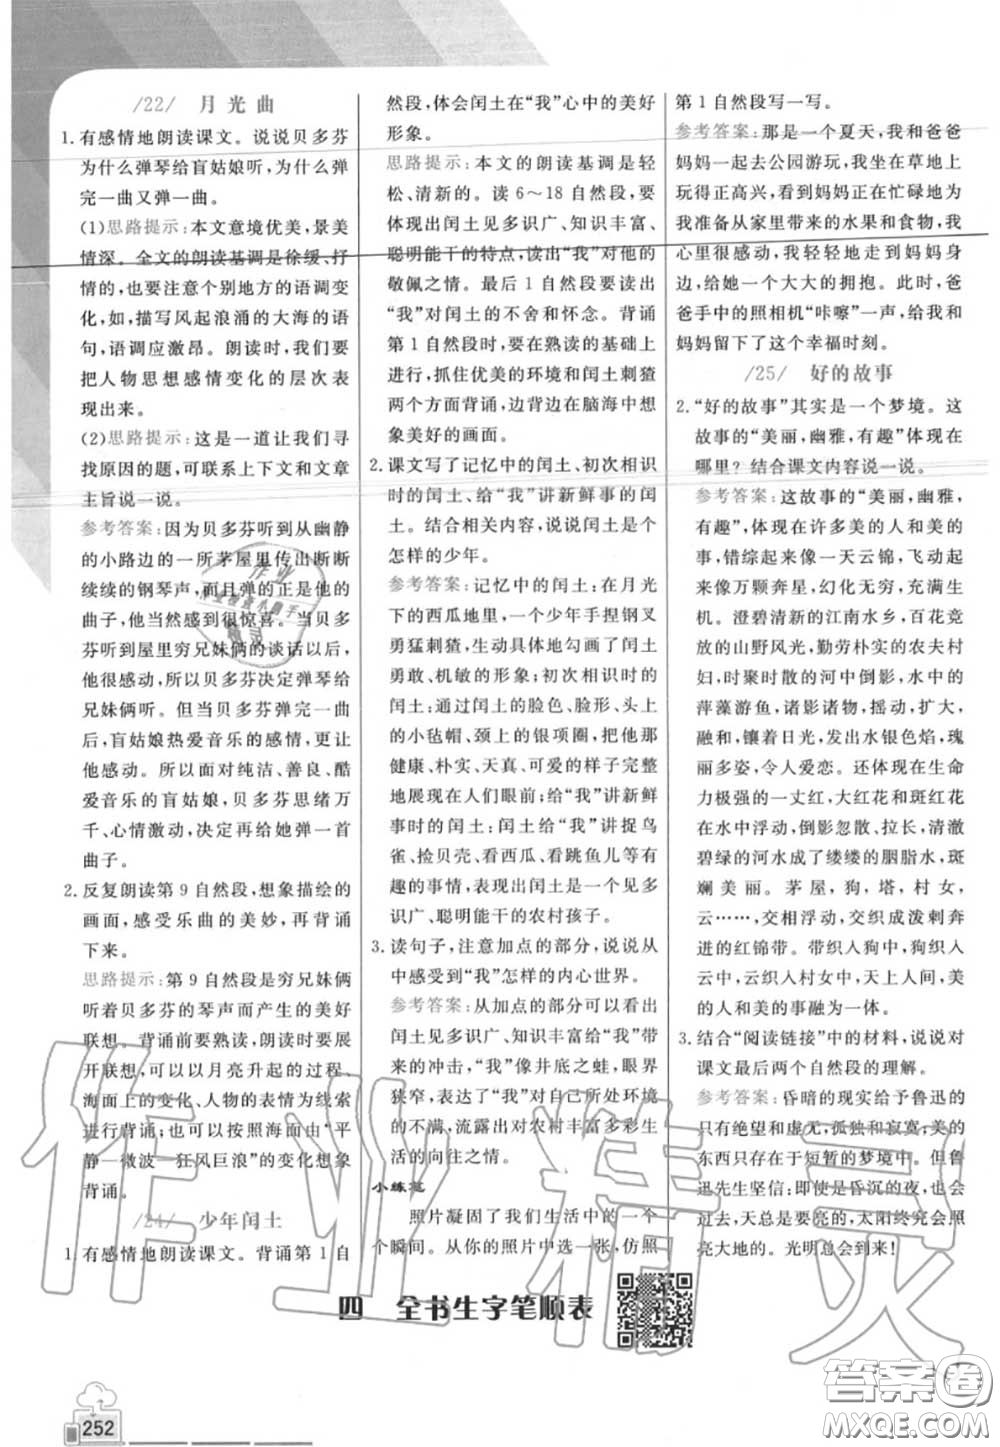 /22/ 月光曲
1. 有感情地朗读课文。说说贝多芬
为什么弹琴给盲姑娘听,为什么弹
完一曲又弹一曲。
(1)思路提示:本文意境优美,景美
情深。全文的朗读基调是徐缓、抒
情的,也要注意个别地方的语调变
化,如,描写风起浪涌的大海的语
句,语调应激昂。朗读时,我们要
把人物思想感情变化的层次表
现出来。
(2)思路提示:这是一道让我们寻
找原因的题,可联系上下文和文章
主旨说一说。
参考答案:因为贝多芬听到从幽静
的小路边的一所茅屋里传出断断
续续的钢琴声,而且弹的正是他的
曲子,他当然感到很惊喜。当贝多
芬听到屋里穷兄妹俩的谈话以后,
感动不已,所以贝多芬决定弹琴给
兄妹俩听。但当贝多芬弹完一曲
后,盲姑娘热爱音乐的感情,更让
他感动。所以面对纯洁、善良、酷
爱音乐的盲姑娘,贝多芬思绪万
千、心情激动,决定再给她弹一首
曲子。
2. 反复朗读第9自然段,想象描绘的
画面,感受乐曲的美妙,再背诵
下来。
思路提示:第9自然段是穷兄妹俩
听着贝多芬的琴声而产生的美好
联想。背诵前要熟读,背诵时要展
开联想,可以以月亮升起的过程、
海面上的变化、人物的表情为线索
进行背诵;也可以按照海面由“平
静—微波—狂风巨浪”的变化想象
背诵。
/24/ 少年闰土
1. 有感情地朗读课文。背诵第1自
然段,体会闰土在“我”心中的美好
形象。
思路提示:本文的朗读基调是轻
松、清新的。读6~18自然段,要
体现出闰土见多识广、知识丰富、
聪明能干的特点,读出“我”对他的
敬佩之情。最后1自然段要读出
“我”对闰土的不舍和怀念。背诵
第1自然段时,要在熟读的基础上
进行,抓住优美的环境和闰土刺猹
两个方面背诵,边背边在脑海中想
象美好的画面。
2. 课文写了记忆中的闰土、初次相识
时的闰土、给“我”讲新鲜事的闰
土。结合相关内容,说说闰土是个
怎样的少年。
参考答案:记忆中的闰土:在月光
下的西瓜地里,一个少年手捏钢叉
勇猛刺猹,这里生动地勾画了闰土
勇敢、机敏的形象;初次相识时的
闰土:通过闰土的脸色、脸形、头上
的小毡帽、颈上的银项圈,把他那
健康、朴实、天真、可爱的样子完整
地展现在人们眼前;给“我”讲新鲜
事时的闰土:闰土给“我”讲捉鸟
雀、捡贝壳、看西瓜、看跳鱼儿等有
趣的事情,表现出闰土是一个见多
识广、聪明能干的农村孩子。
3. 读句子,注意加点的部分,说说从
中感受到“我”怎样的内心世界。
参考答案:从加点的部分可以看出
闰土见多识广、知识丰富给“我”带
来的冲击,“我”像井底之蛙,眼界
狭窄,表达了“我”对自己所处环境
的不满,流露出对农村丰富多彩生
活的向往之情。
小练笔
照片凝固了我们生活中的一个
个瞬间。从你的照片中选一张,仿照
第1自然段写一写。
参考答案:那是一个夏天,我和爸爸
妈妈一起去公园游玩,我坐在草地上
玩得正高兴,看到妈妈正在忙碌地为
我准备从家里带来的水果和食物,我
心里很感动,我轻轻地走到妈妈身
边,给她一个大大的拥抱。此时,爸
爸手中的照相机“咔嚓”一声,给我和
和妈妈留下了这个幸福时刻。
/25/ 好的故事
2. “好的故事”其实是一个梦境。这
故事的“美丽,幽雅,有趣”体现在
哪里?结合课文内容说一说。
参考答案:这故事的“美丽,幽雅,
有趣”,体现在许多美的人和美的
事,错综起来像一天云锦,飞动起来
像万颗奔星,幻化无穷,充满生
机。澄碧清新的江南水乡,百花竞
放的山野风光,勤劳朴实的农夫村
妇,时聚时散的河中倒影,水中的
萍藻游鱼,诸影诸物,摇动,扩大,
融和,镶着日光,发出水银色焰,瑰
丽多姿,令人爱恋。还体现在生命
力极强的一丈红,大红花和斑红花
在水中浮动,倒影忽散、拉长,清澈
碧绿的河水成了缕缕的胭脂水,斑
斓美丽。茅屋,狗,塔,村女,
云……,交相浮动,交织成泼剌奔
迸的红锦带。带织入狗中,狗织入
云中,云织入村女中,天上人间,美
的人和美的事融为一体。
3. 结合“阅读链接”中的材料,说说对
课文最后两个自然段的理解。
参考答案:昏暗的现实给予鲁迅的
只有绝望和虚无,孤独和寂寞;美的
东西只存在于短暂的梦境中。但鲁
迅先生坚信:即使是昏沉的夜,也会
过去,天总是要亮的,太阳终究会照
亮大地的。光明总会到来!
四 全书生字笔顺表
252
作业精灵
答案圈
MXQE.COM